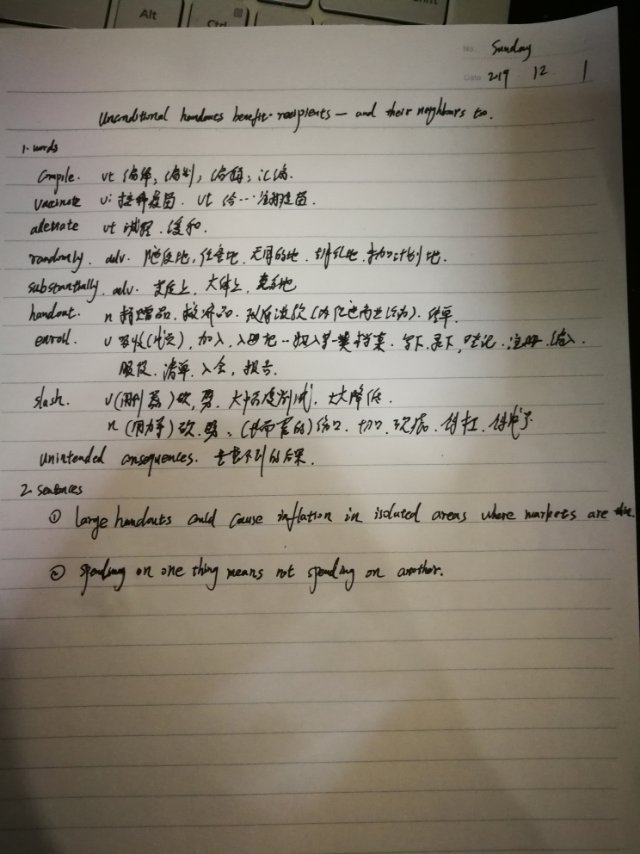 Alt
Ctrl
No. Sunday
Date 2019 12 1
Unconditional handouts benefit recipients — and their neighbours too.
1. words
Compile. vt 编译; 编制; 编辑; 汇编.
vaccinate vi 接种疫苗. vt 给…注射疫苗
alleviate vt 减轻. 缓和.
randomly. adv. 随便地, 任意地. 无目的地. 胡乱地. 未加计划地.
substantially. adv. 实质上. 大体上.
handout. n 捐赠品. 救济品. 政府拨款. 传单.
enroll. v 加入. 写下. 录下. 登记. 注册.
服役. 清单. 入会. 报告.
slash. v (用利器) 砍, 劈. 大幅度削减. 大大降低
n (用力等) 砍. 劈. 伤口. 切口. 砍痕. 斜杠.
Unintended consequences. 意想不到的后果.
2. sentences
① Large handouts could cause inflation in isolated areas where markets are
② Spending on one thing means not spending on another.